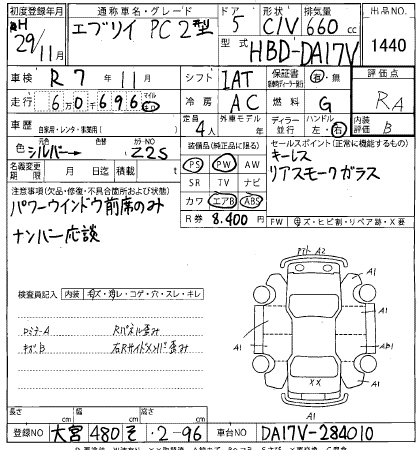 初度登録年月 通称車名・グレード ドア 形状 排気量 出品NO.
H 29/11月 エブリイ PC 2型 5 C/V 660 cc 1440
型式 HBD-DA17V
車検 R 7年 11月 シフト IAT 保証書 有・無 評価点
走行 6万0千696 マイル km 冷房 AC 燃料 G RA
車歴 自家用・レンタ・事業用( ) 定員 4人 外車モデル 年 ディーラー 並行 ハンドル 左・右 内装評価 B
色 シルバー 色替 カラーNO Z2S 装備品(純正品に限る) セールスポイント(正常に機能するもの)
名義変更期限 月 日迄 積載量 t PS PW AW キーレス
注意事項(欠品・修復・不具合箇所および状態) SR TV ナビ リアスモークガラス
パワーウインドウ前席のみ カワ エアB ABS
ナンバー応談 R券 8.400円 FW キズ・ヒビ割・リペア跡・X要
検査員記入 内装 キズ・汚レ・コゲ・穴・スレ・キレ
アト A2
A1
A1
A1
A1
Rパネル歪み
キズB 右Rサイドメンバ歪み
AB1
XX
A1
長さ cm 幅 cm 高さ cm
登録NO 大宮 480 そ ・2-96 車台NO DA17V-284010